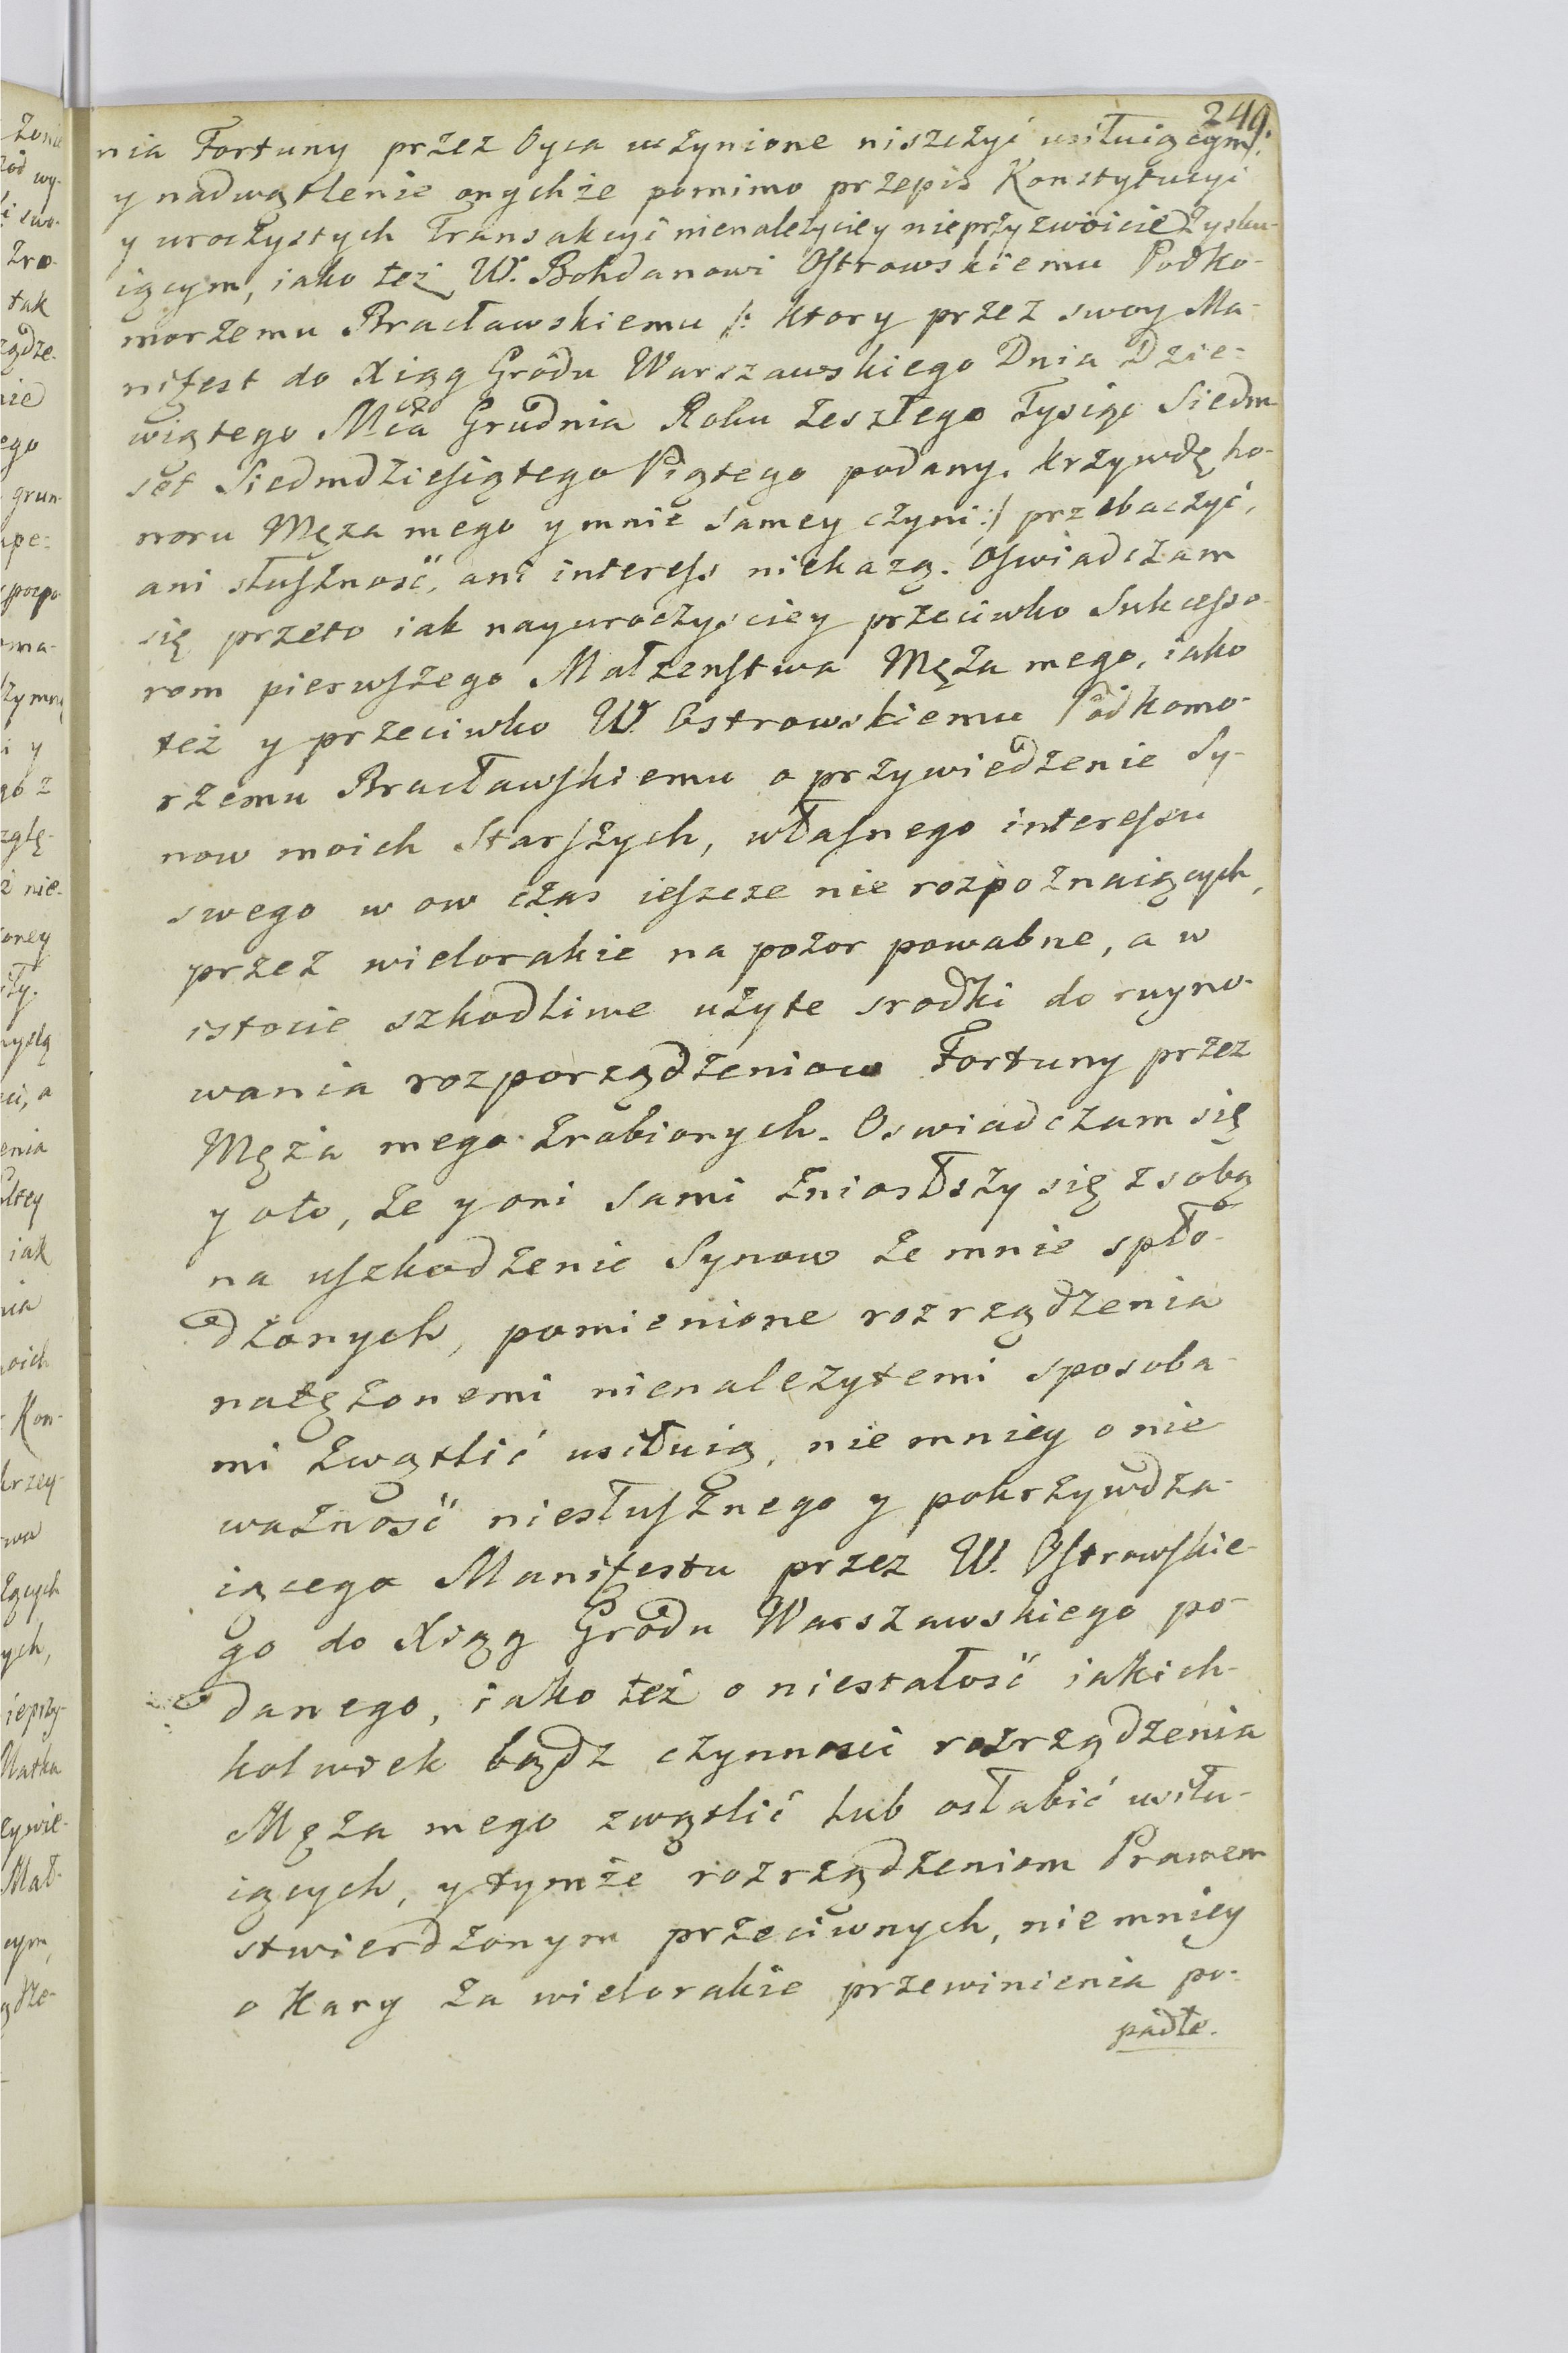 249.
nia Fortuny przez Oyca uczynione niszczyć usiłuiącym:
y nadwątlenie onychże pomimo przepis Konstytucyi
y uroczystych Transakcyi nienależyciey nieprzyzwoicie zysku-
iącym, iako też W. Bohdanowi Ostrowskiemu Podko-
morzemu Bracławskiemu /: ktory przez swoy Ma-
nifest do Xiąg Grodu Warszawskiego Dnia Dzie-
wiątego Mca Grudnia Roku zeszłego Tysiąc Siedm
set Siedmdziesiątego Piątego podany. krzywdę ho-
noru Męza mego y mnie samey czyni :/ przebaczyć,
ani słuszność, ani interess niekazą. Oswiadczam
się przeto iak nayuroczysciey przeciwko Sukcesso-
rom pierwszego Małzenstwa Męża mego, iako
też y przeciwko W. Ostrowskiemu Podkomo-
rzemu Bracławskiemu o przywiedzenie Sy-
now moich Starszych, własnego interessu
swego w ow czas ieszcze nie rozpoznaiących,
przez wielorakie na pozor powabne, a w
istocie szkodliwe użyte srodki do ruyno-
wania rozporządzeniow Fortuny przez
Męża mego zrobionych. Oswiadczam się
y oto, że y oni sami zniosłszy się z sobą
na uszkodzenie Synow ze mnie spło-
dzonych, pomienione rozrządzenia
natężonemi nienalezytemi sposoba-
mi zwątlić usiłuią, nie mniey o nie
ważność niesłusznego y pokrzywdza-
iącego Manifestu przez W. Ostrowskie-
go do Xiąg Grodu Warszawskiego po-
danego, iako też o niestałość iakich-
kolwiek bądz czynnosci rozrządzenia
Męża mego zwątlić lub osłabić usiłu-
iących, y tymże rozrządzeniom Prawem
stwierdzonym przeciwnych, nie mniey
o kary za wielorakie przewinienia po-
padłe.